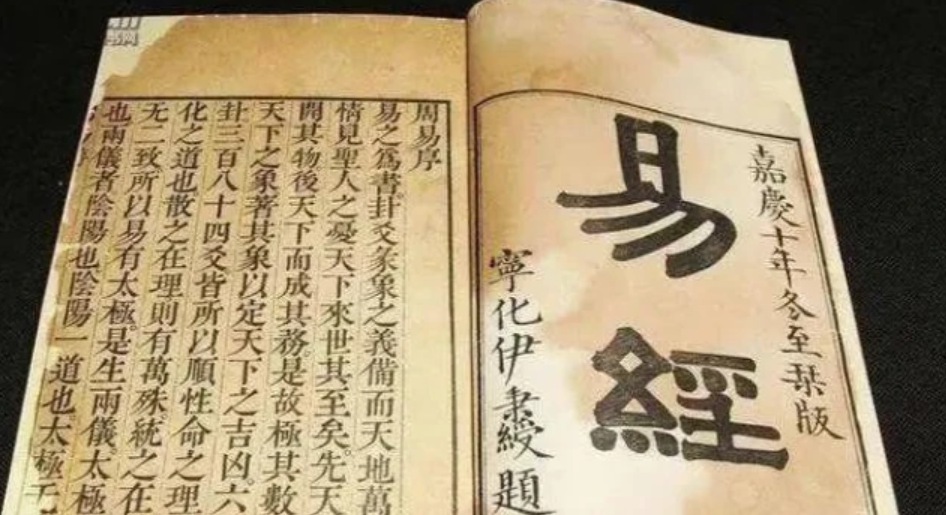 嘉慶十年冬至栞版
易經
寧化伊秉綬題
周易序
易之爲書卦爻彖象之義備而天地萬
情見聖人之憂天下來世其至矣。先天
開其物後天下而成其務。是故極其數
天下之象著其象以定天下之吉凶。六
卦三百八十四爻皆所以順性命之理
化之道也散之在理則有萬殊。統之在
无二致所以易有太極。是生兩儀。太極
也兩儀者陰陽也陰陽一道也太極